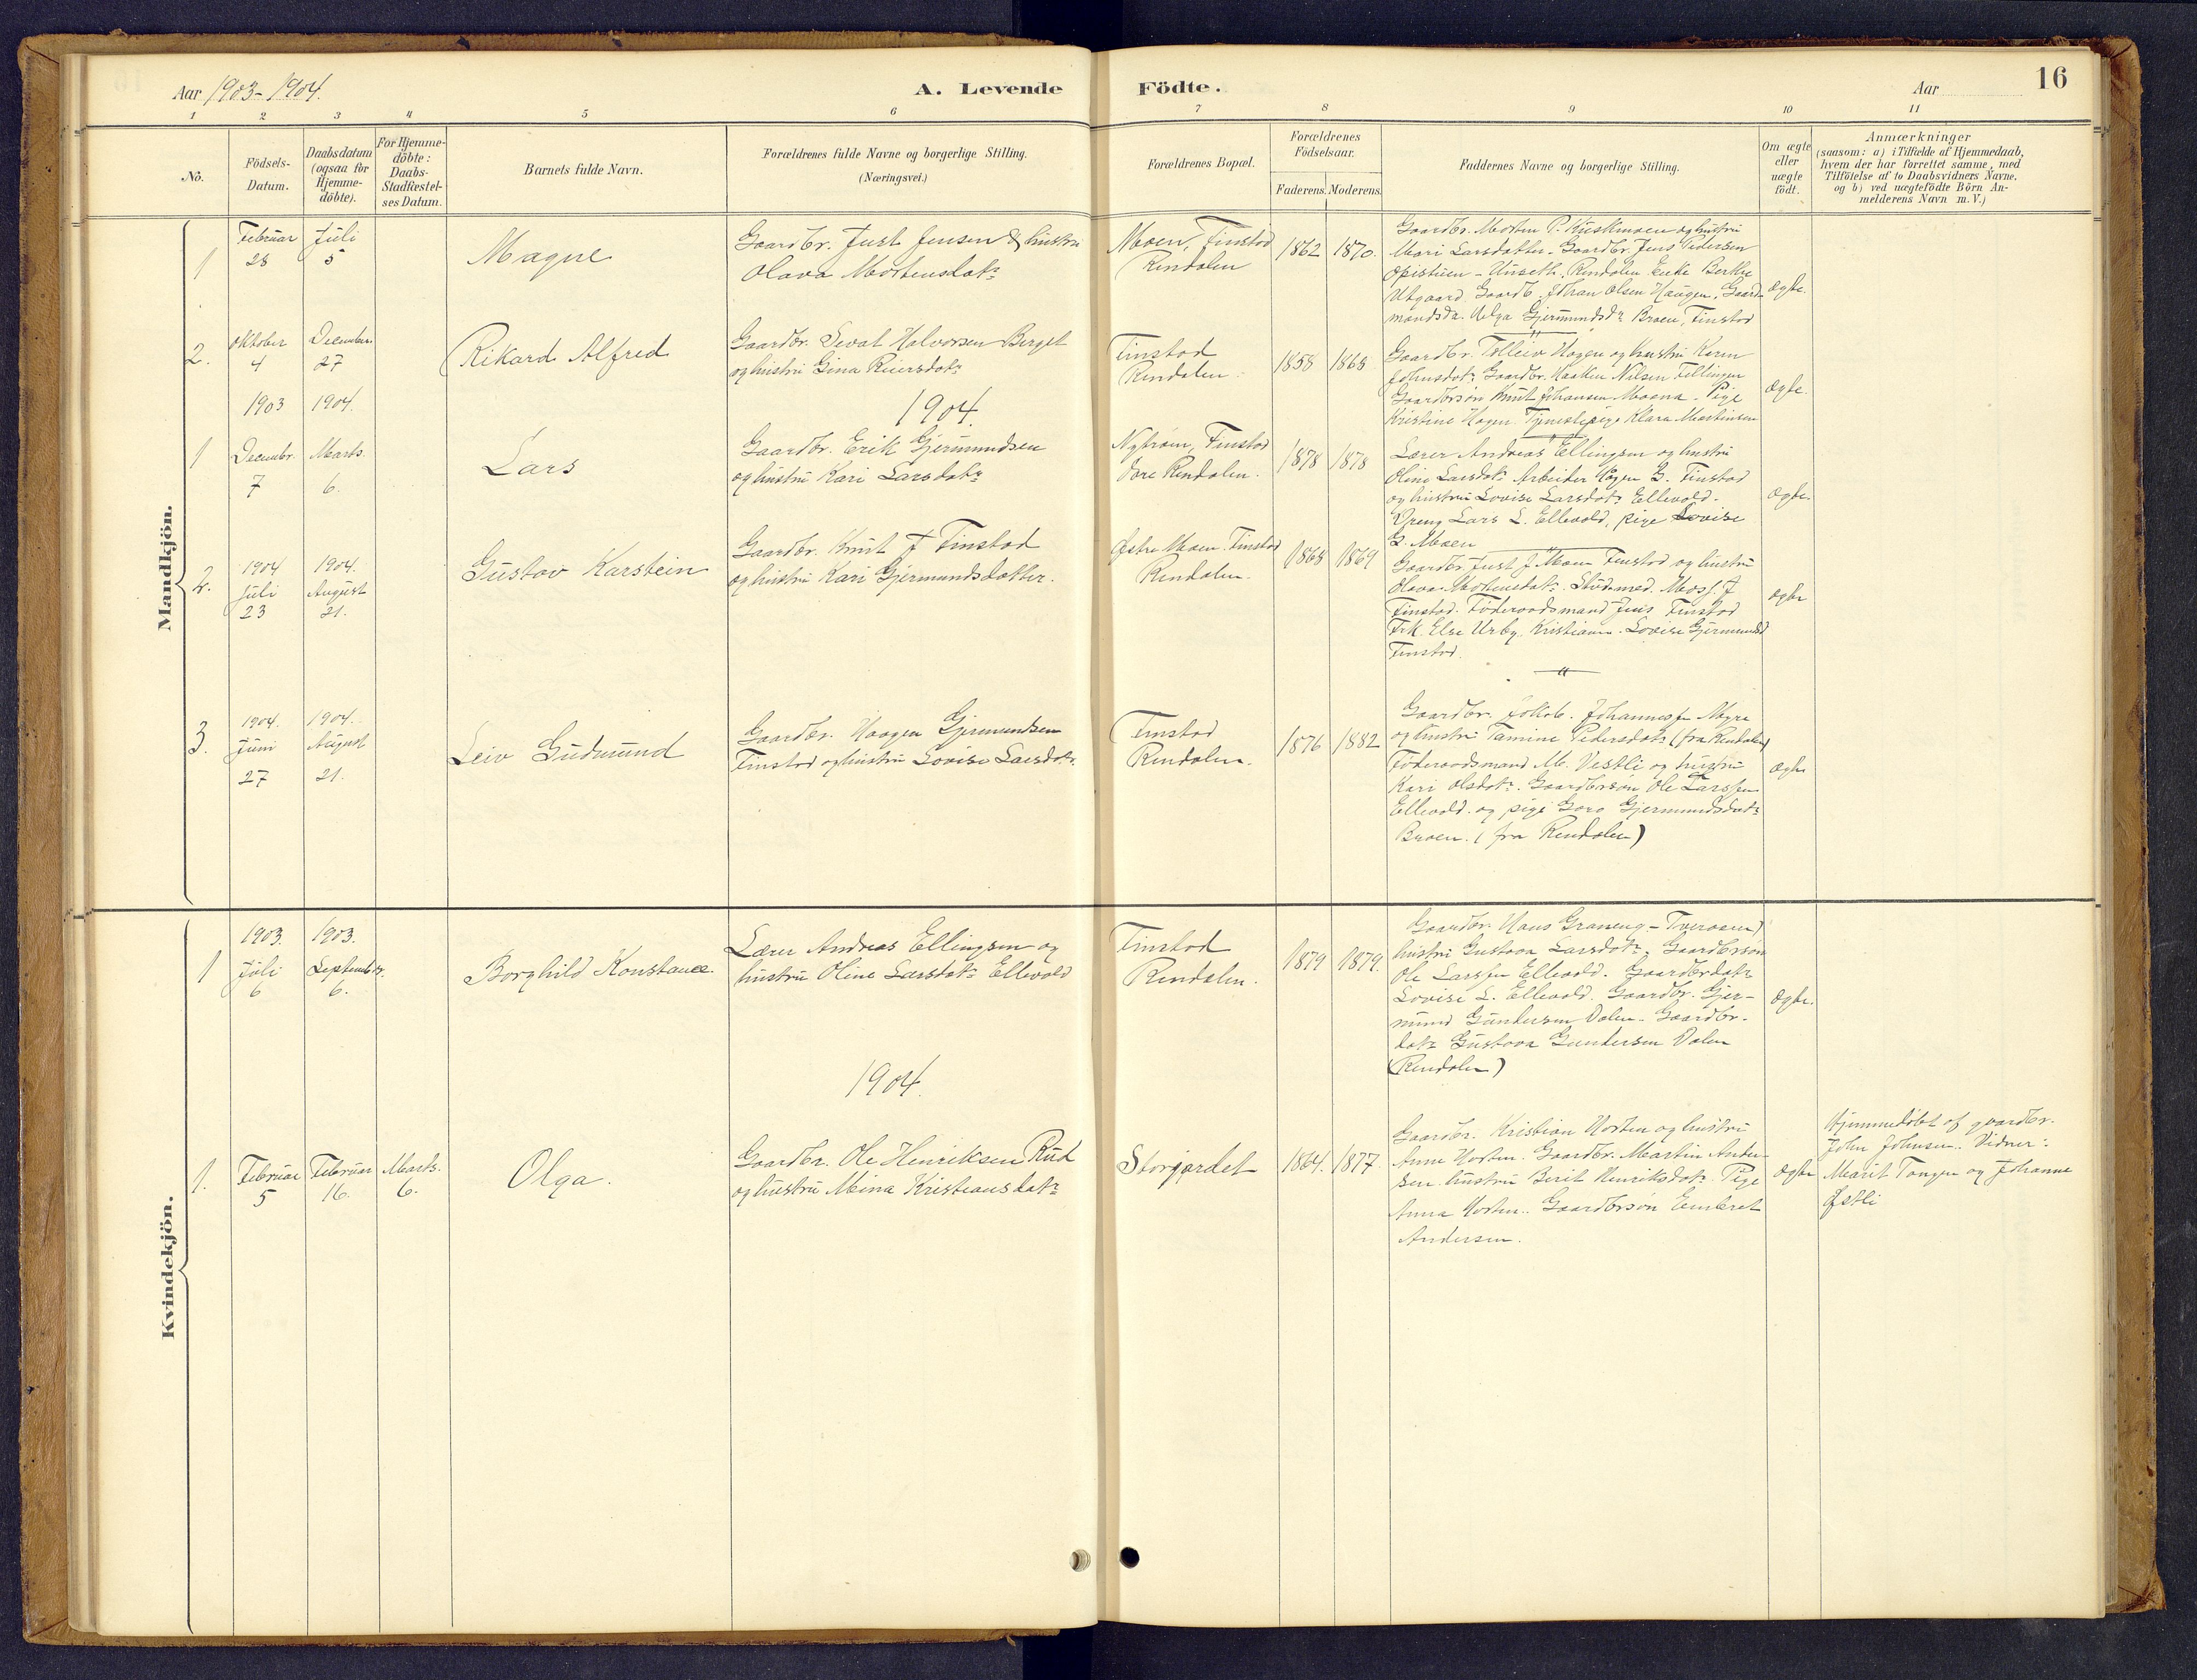 Aar 1903-1904.
A. Levende Födte.
Aar
16
1 2 3 4 5 6 7 8 9 10 11
No.
Födsels-
Datum.
Daabsdatum
(ogsaa for
Hjemme-
döbte).
For Hjemme-
döbte:
Daabs-
Stadfæstel-
ses Datum.
Barnets fulde Navn.
Forældrenes fulde Navne og borgerlige Stilling.
(Næringsvei.)
Forældrenes Bopæl.
Forældrenes
Födselsaar.
Faderens. Moderens.
Faddernes Navne og borgerlige Stilling.
Om ægte
eller
uægte
födt.
Anmærkninger
(saasom: a) i Tilfælde af Hjemmedaab,
hvem der har forrettet samme, med
Tilföielse af to Daabsvidners Navne,
og b) ved uægtefödte Börn An-
melderens Navn m. V.)
Mandkjön.
1
Februar
28
Juli
5
Magne
Gaardbr. Just Jensen & hustru
Olava Mortensdatr
Moen, Finstad
Rendalen
1862 1870.
Gaardbr. Morten P. Kuskmoen og hustru
Mari Larsdatter. Gaardbr. Jens Pedersen
Opistuen - Unseth. Rendalen Enke Berthe
Utgaard. Gaardb. Johan Olsen Haugen. Gaard-
mandsda. Helga Gjermundsdr Braen, Finstad
Ægte.
2.
Oktober
4
December
27
Rikard Alfred
Gaardbr. Sevat Halvorsen Berget
og hustru Gina Reiersdatr
Finstad
Rendalen.
1858 1868
Gaardbr. Tolleiv Hagen og hustru Karen
Johnsdatr Gaardbr. Haaken Nilsen Fellingen
Gaardbrsön Knut Johansen Moena. Pige
Kristine Hagen. Tjenestepige Klara Martinsen
Ægte.
1903 1904.
1904.
1
Decembr.
7
Marts.
6.
Lars
Gaardbr. Erik Gjermundsen
og hustru Kari Larsdatr
Nybraen, Finstad
Øvre Rendalen.
1878 1878
Lærer Andreas Ellingsen og hustru
Oline Larsdatr Arbeider Hagen G. Finstad
og hustru Lovise Larsdatr Ellevold.
Dreng Lars L. Ellevold, pige Lovise
G. Moen
Ægte.
2.
1904
Juli
23
1904.
August
21.
Gustav Karstein
Gaardbr. Knut J Finstad
og hustru Kari Gjermundsdatter.
Østre Moen. Finstad
Rendalen.
1868 1869
Gaardbr Just J. Moen Finstad og hustru
Olava Mortensdatr. Stud. med. J
Finstad. Föderaadsmand Jens Finstad
Frk. Else Urby. Kristiania. Lovise Gjermundsd
Finstad.
Ægte
3.
1904.
Juni
27
1904.
August
21.
Leiv Gudmund
Gaardbr. Haagen Gjermundsen
Finstad og hustru Lovise Larsdatr.
Finstad
Rendalen.
1876 1882
Gaardbr. Jokob. Johannessen Myra
og hustru Tamine Pedersdatr (fra Rendalen)
Föderaadsmand M. Vestli og hustru
Kari Olsdatr. Gaardbrsön Ole Larssen
Ellevold. og pige Goro Gjermundsdatr
Braen. (fra Rendalen)
Ægte
Kvindekjön.
1
1903.
Juli
6
1903.
Septembr.
6.
Borghild Konstance.
Lærer Andreas Ellingsen og
hustru Oline Larsdatr Ellevold
Finstad
Rendalen.
1879 1879.
Gaardbr. Hans Graneng - Tveraaen)
hustru Gustava Larsdatr. Gaardbrsön
Ole Larssen Ellevold. Gaardbrdatr
Lovise L. Ellevold. Gaardbr. Gjer-
mund Gundersen Dalen. Gaardbr.
datr Gustava Gundersen Dalen
(Rendalen)
Ægte.
1904.
1.
Februar
5
Februar
16.
Marts.
6.
Olga.
Gaardbr. Ole Henriksen Rud
og hustru Mina Kristiansdatr
Storjordet
1864. 1877.
Gaardbr. Kristian Horten og hustru
Anne Horten. Gaardbr. Martin Ander-
sen hustru Berit Henriksdatr. Pige
Anna Horten. Gaardbrsön Embret
Andersen.
Ægte
Hjemmedöbt af gaardbr.
John Johnsen. Vidner:
Marit Tangen og Johanne
Østli